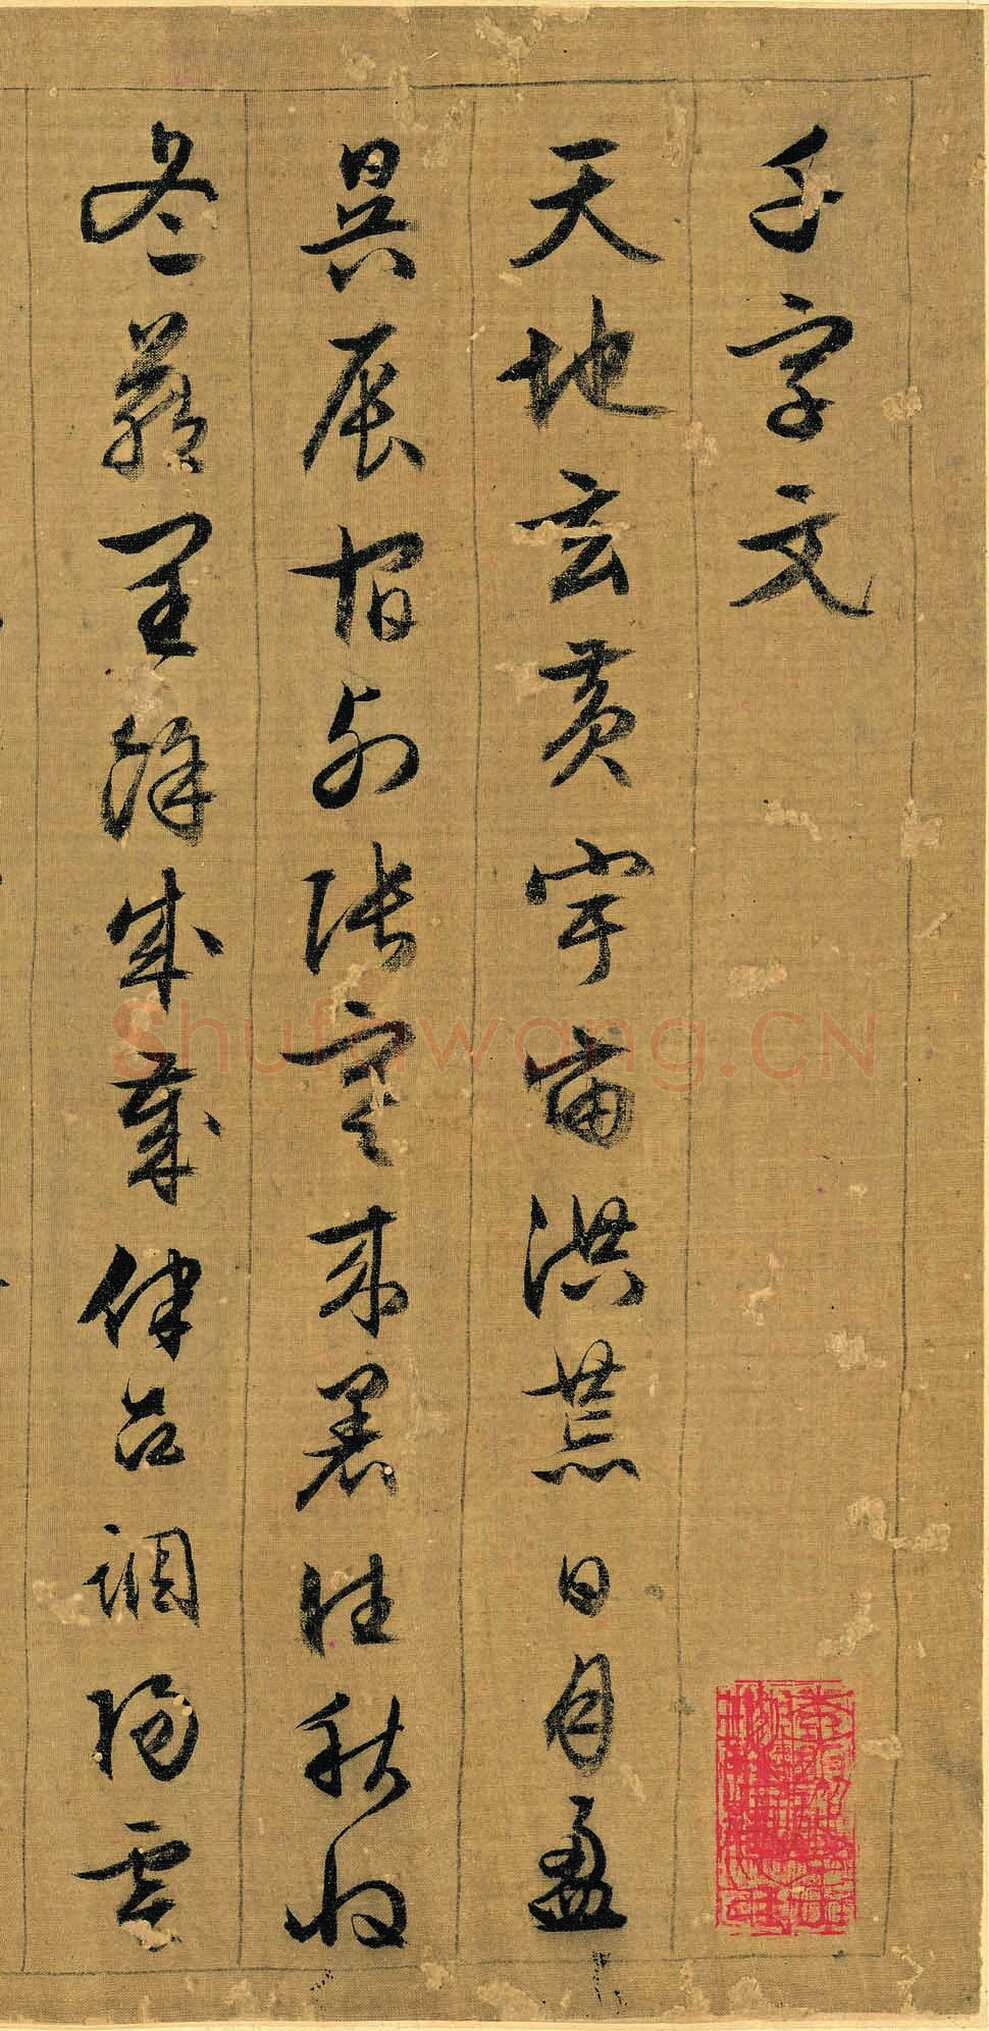 千字文
天地玄黄宇宙洪荒日月盈
昃辰宿列張寒来暑往秋收
冬藏閏餘成歲律吕調陽雲
Shufawang.CN